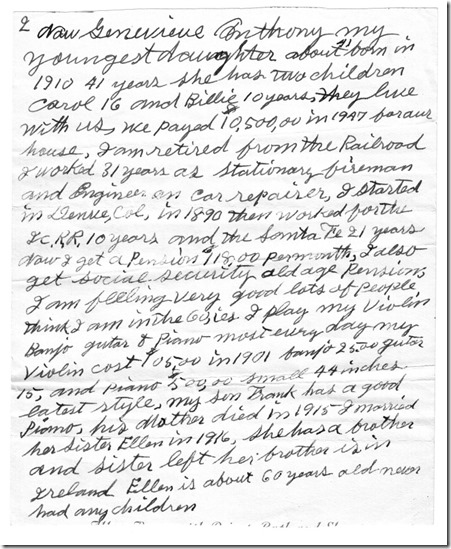 2 Now Genevieve Anthony my
youngest daughter about 41 born in
1910 41 years she has two children
Carol 16 and Billie 10 years, they live
with us, we payed $10,500,00 in 1947 for our
house, I am retired from the Railroad
I worked 31 years as stationary fireman
and Engineer an car repairer, I started
in Denver, Col, in 1890 then worked for the
I.C.R.R. 10 years and the Santa Fe 21 years
Now I get a Pension $118,00 per month, I also
get social security old age Pension,
I am feeling very good lots of people
think I am in the 60,ies. I play my Violin
Banjo guitar & Piano most every day my
Violin cost $105.00 in 1901 banjo 25.00 guitar
15, and piano $500,00 small 44 inches
latest style, my son Frank has a good
Piano, his Mother died in 1915 I married
her sister Ellen in 1916, she has a brother
and sister left her brother is in
Ireland Ellen is about 60 years old never
had any children